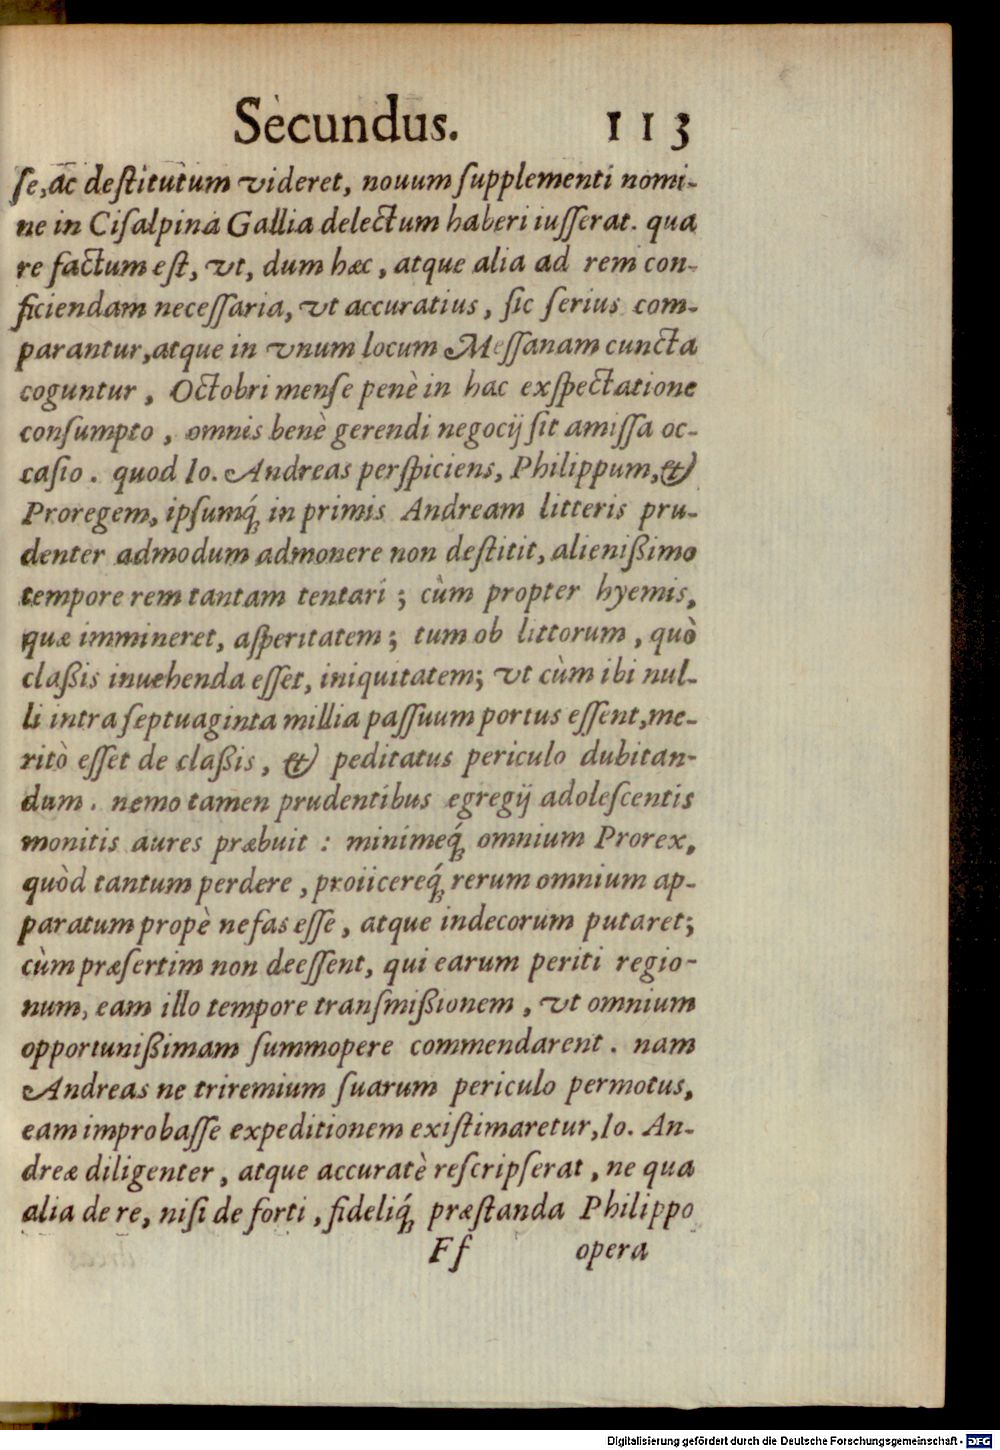 Secundus. 113
ſe, ac deſtitutum videret, nouum ſupplementi nomi-
ne in Ciſalpina Gallia delectum haberi iuſſerat. qua
re factum eſt, vt, dum hæc, atque alia ad rem con-
ficiendam neceſſaria, vt accuratius, ſic ſerius com-
parantur, atque in vnum locum Meſſanam cuncta
coguntur, Octobri menſe penè in hac exſpectatione
conſumpto, omnis benè gerendi negocij ſit amiſſa oc-
caſio. quod Io. Andreas perſpiciens, Philippum, &
Proregem, ipſumq́; in primis Andream litteris pru-
denter admodum admonere non deſtitit, alienißimo
tempore rem tantam tentari; cùm propter hyemis,
quæ immineret, aſperitatem; tum ob littorum, quò
claßis inuehenda eſſet, iniquitatem; vt cùm ibi nul-
li intra ſeptuaginta millia paſſuum portus eſſent, me-
ritò eſſet de claßis, & peditatus periculo dubitan-
dum. nemo tamen prudentibus egregij adoleſcentis
monitis aures præbuit: minimeq́; omnium Prorex,
quòd tantum perdere, proiicereq́; rerum omnium ap-
paratum propè nefas eſſe, atque indecorum putaret;
cùm præſertim non deeſſent, qui earum periti regio-
num, eam illo tempore tranſmißionem, vt omnium
opportunißimam ſummopere commendarent. nam
Andreas ne triremium ſuarum periculo permotus,
eam improbaſſe expeditionem exiſtimaretur, Io. An-
dreæ diligenter, atque accuratè reſcripſerat, ne qua
alia de re, niſi de forti, fideliq́; præſtanda Philippo
Ff opera
Digitalisierung gefördert durch die Deutsche Forschungsgemeinschaft - DFG